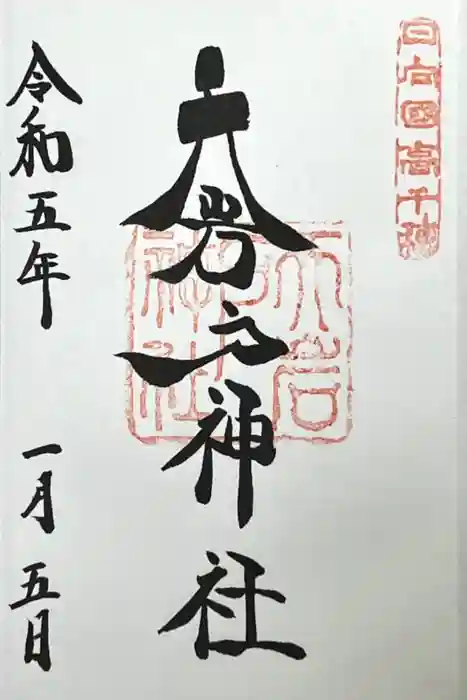 日向國高千穂
天岩戸神社
天岩戸神社
令和五年 一月五日